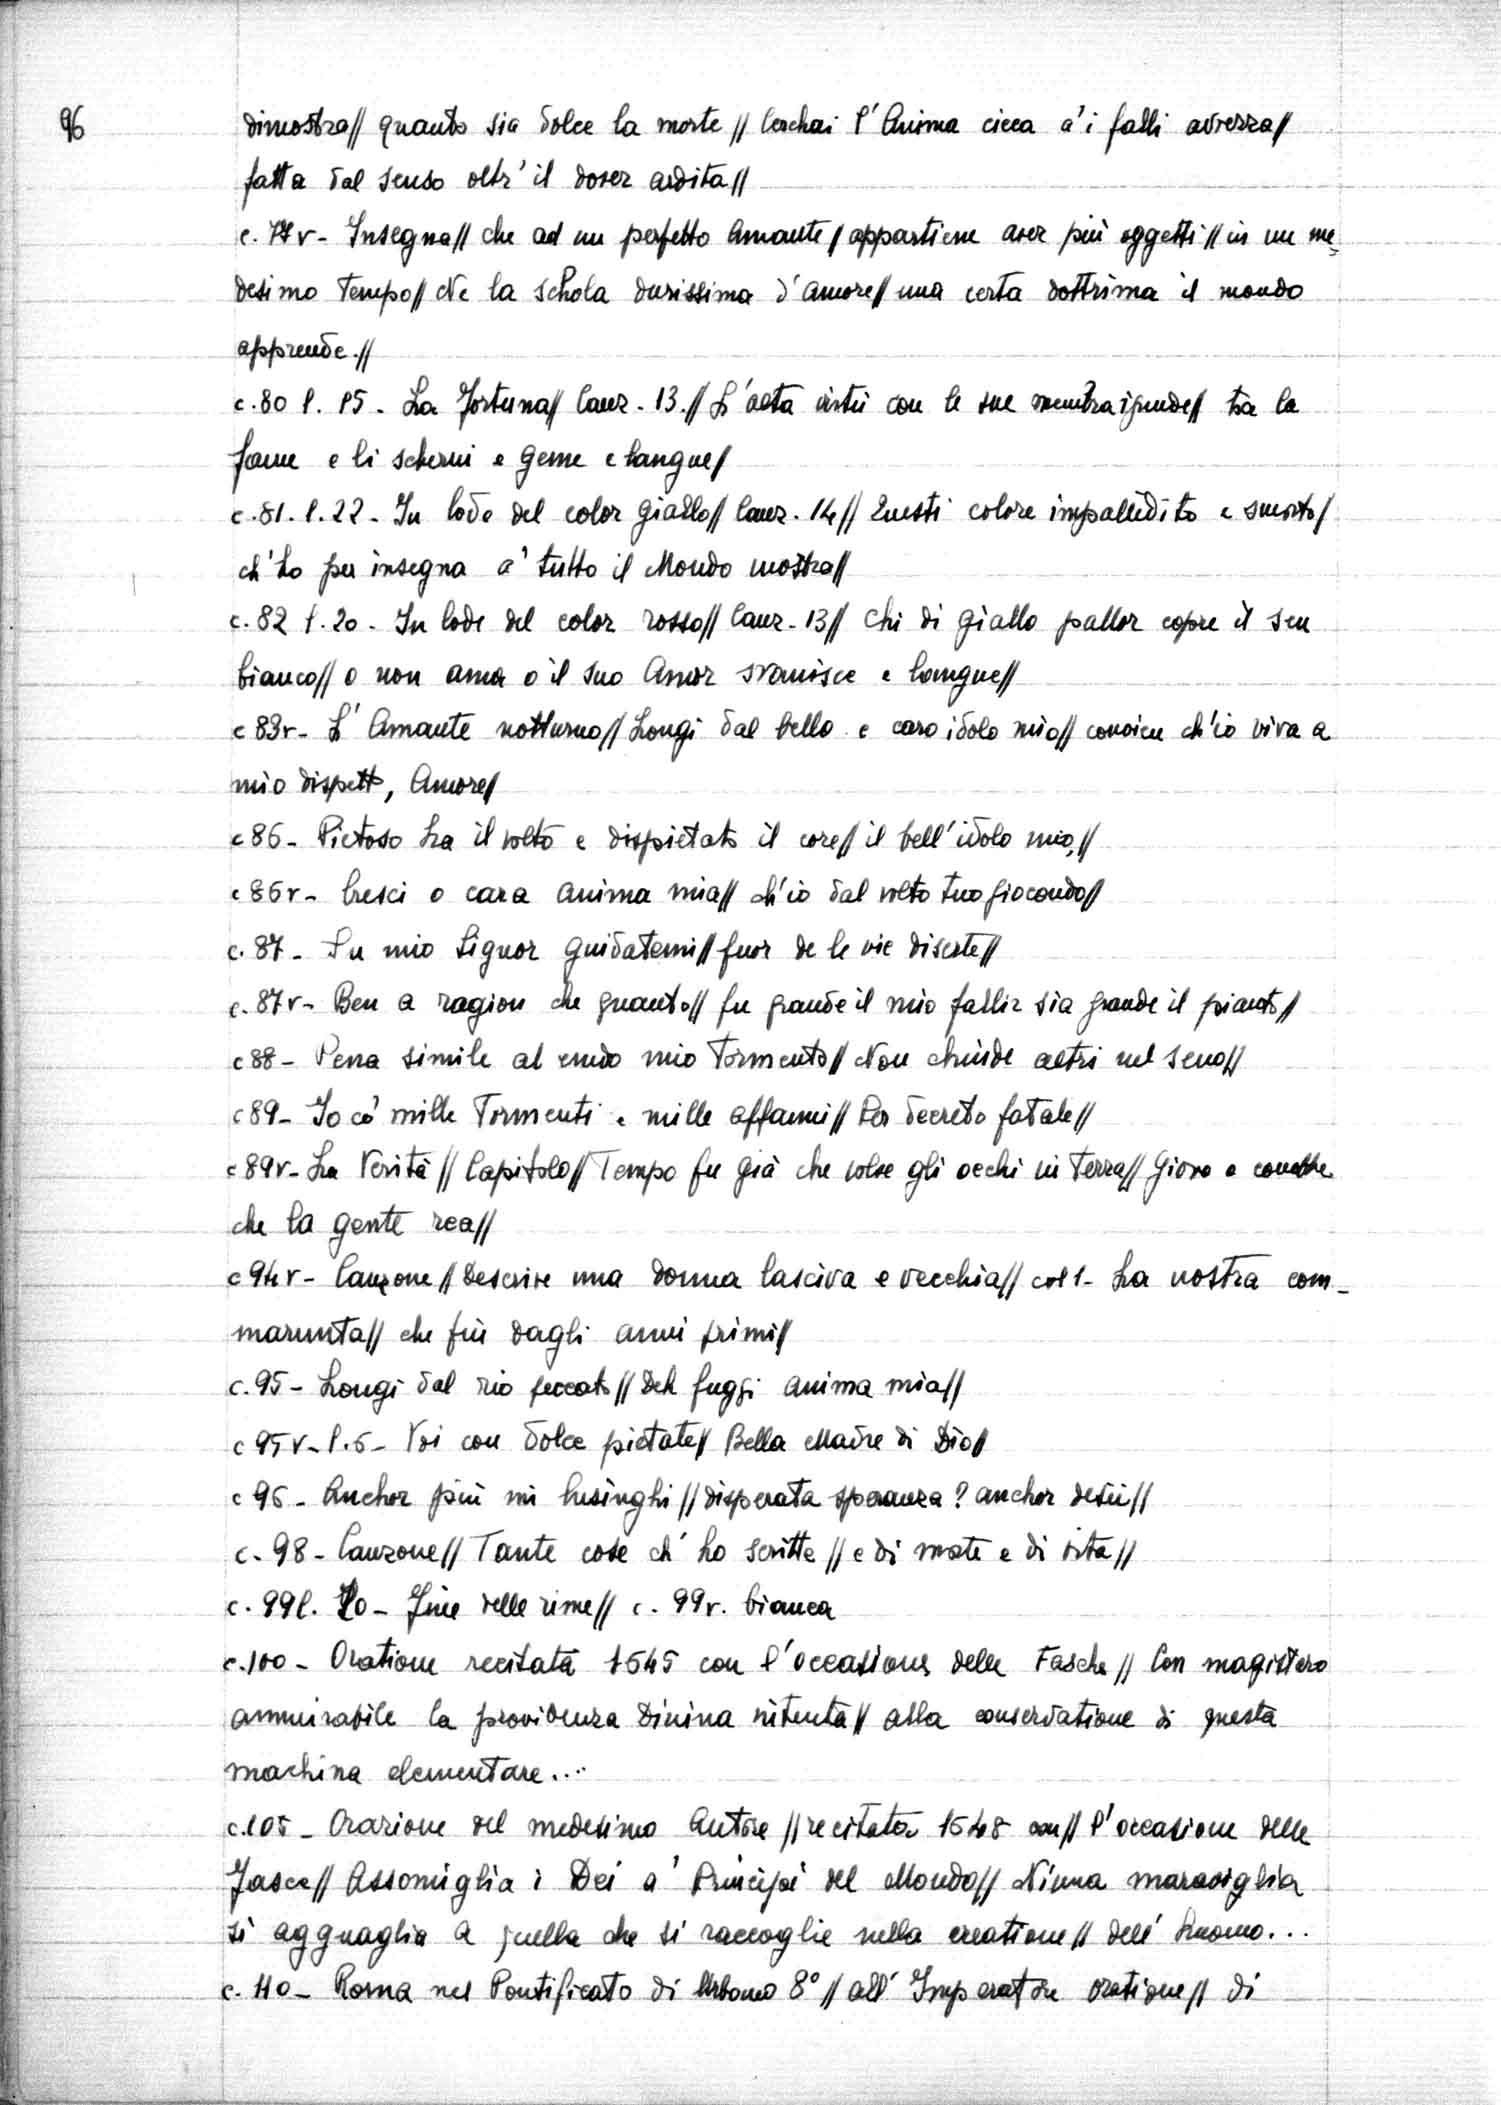 96
dimostra// quanto sia dolce la morte // Cerchai l'Anima cieca a'i falli avvezza/
fatta dal senso oltr'il dover ardita//
c. 77v - Insegna// che ad un perfetto Amante/ appartiene aver più oggetti// in un me=
desimo tempo// Ne la schola durissima d'amore// una certa dottrima il mondo
apprende.//
c. 80 l. 15 - La Fortuna// Canz. 13.// L'alta virtù con le sue membra ignude// tra la
fame e li scherni e geme e langue/
c. 81. l. 22 - In lode del color giallo// Canz. 14// Questi colore impallidito e smorto/
ch'ho per insegna a' tutto il Mondo mostra//
c. 82 l. 20 - In lode del color rosso// Canz. 13// Chi di giallo pallor copre il sen
bianco// o non ama o il suo Amor svanisce e langue//
c 83r - L'Amante notturno// Longi dal bello e caro idolo mio// convien ch'io viva a
mio dispetto, Amore/
c 86 - Pietoso ha il volto e dispietato il core// il bell'idolo mio,//
c 86v - Cresci o cara anima mia// ch'io dal volto tuo giocondo//
c. 87 - Su mio Signor guidatemi// fuor de le vie diserte//
c. 87v - Ben a ragion che quanto// fu grande il mio fallir sia grande il pianto//
c 88 - Pena simile al crudo mio tormento// Non chiude altri nel seno//
c 89 - Io cò mille tormenti e mille affanni// Per decreto fatale//
c 89v - La Verità // Capitolo// Tempo fu già che volse gli occhi in terra// Giove e conobbe
che la gente rea//
c 94v - Canzone // Descrive una donna lasciva e vecchia// col 1 - La nostra com-
marunta// che fin dagli anni primi/
c. 95 - Longi dal rio peccato// Deh fuggi anima mia//
c 95v - l. 5 - Voi con dolce pietate/ Bella Madre di Dio/
c 96 - Anchor più mi lusinghi// disperata speranza? anchor desii//
c. 98 - Canzone// Tante cose ch'ho scritte // e di morte e di vita//
c. 99 l. 20 - Fine delle rime// c. 99v. bianca
c. 100 - Oratione recitata 1645 con l'occasione delle Fasche // Con magistero
ammirabile la providenza Divina intenta// alla conservatione di questa
machina elementare...
c. 105 - Orazione del medesimo Autore // recitata 1648 con// l'occasione delle
Fasce// Assomiglia i Dei a' Principi del Mondo// Niuna maraviglia
si agguaglia a quella che si raccoglie nella creatione// dell'huomo...
c. 110 - Roma nel Pontificato di Urbano 8° // all'Imperatore oratione// di